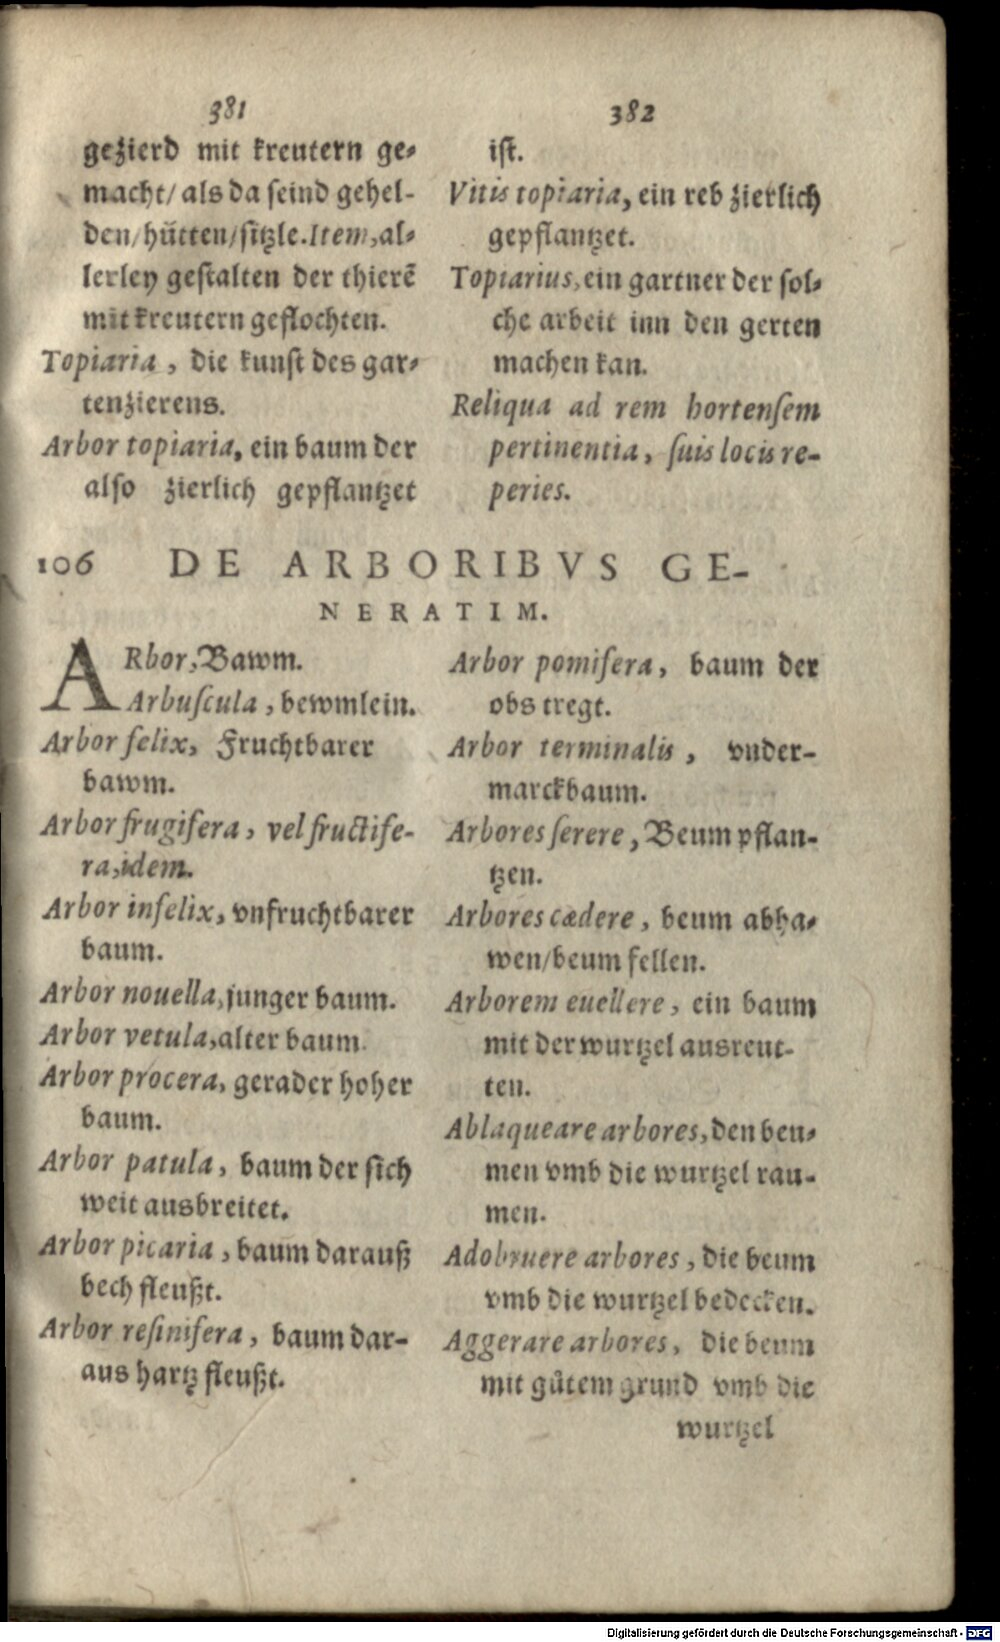 381
gezierd mit kreutern ge⸗
macht/ als da seind gehel-
den/hütten/sitzle. Item, al⸗
lerley gestalten der thierē
mit kreutern geflochten.
Topiaria, die kunst des gar⸗
tenzierens.
Arbor topiaria, ein baum der
also zierlich gepflantzet
382
ist.
Vitis topiaria, ein reb zierlich
gepflantzet.
Topiarius, ein gartner der sol⸗
che arbeit inn den gerten
machen kan.
Reliqua ad rem hortensem
pertinentia, suis locis re-
peries.
106 DE ARBORIBVS GE-
NERATIM.
ARbor, Bawm.
Arbuscula, bewmlein.
Arbor felix, Fruchtbarer
bawm.
Arbor frugifera, vel fructife-
ra, idem.
Arbor infelix, vnfruchtbarer
baum.
Arbor nouella, junger baum.
Arbor vetula, alter baum.
Arbor procera, gerader hoher
baum.
Arbor patula, baum der sich
weit ausbreitet.
Arbor picaria, baum darauß
bech fleußt.
Arbor resinifera, baum dar-
aus hartz fleußt.
Arbor pomifera, baum der
obs tregt.
Arbor terminalis, vnder-
marckbaum.
Arbores serere, Beum pflan-
tzen.
Arbores cædere, beum abha⸗
wen/beum fellen.
Arborem euellere, ein baum
mit der wurtzel ausreut-
ten.
Ablaqueare arbores, den beu⸗
men vmb die wurtzel rau-
men.
Adobruere arbores, die beum
vmb die wurtzel bedecken.
Aggerare arbores, die beum
mit gůtem grund vmb die
wurtzel
Digitalisierung gefördert durch die Deutsche Forschungsgemeinschaft - DFG